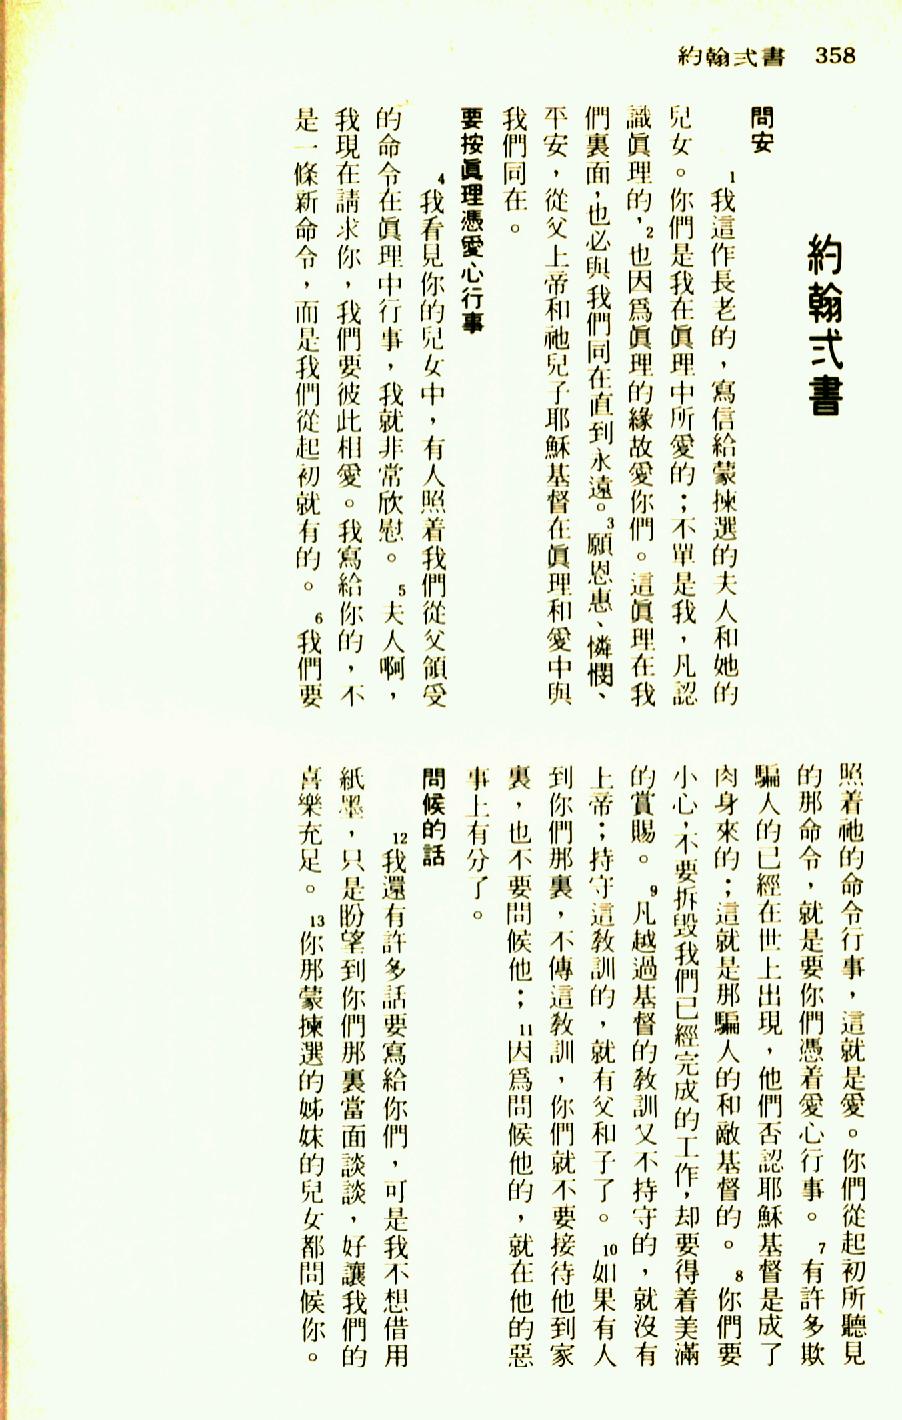 約翰弍書　358
約翰弍書
問安
1我這作長老的，寫信給蒙揀選的夫人和她的
兒女。你們是我在眞理中所愛的；不單是我，凡認
識眞理的，2也因爲眞理的緣故愛你們。這眞理在我
們裏面，也必與我們同在直到永遠。3願恩惠、憐憫、
平安，從父上帝和祂兒子耶穌基督在眞理和愛中與
我們同在。
要按眞理憑愛心行事
4我看見你的兒女中，有人照着我們從父領受
的命令在眞理中行事，我就非常欣慰。5夫人啊，
我現在請求你，我們要彼此相愛。我寫給你的，不
是一條新命令，而是我們從起初就有的。6我們要
照着祂的命令行事，這就是愛。你們從起初所聽見
的那命令，就是要你們憑着愛心行事。7有許多欺
騙人的已經在世上出現，他們否認耶穌基督是成了
肉身來的；這就是那騙人的和敵基督的。8你們要
小心，不要拆毀我們已經完成的工作，却要得着美滿
的賞賜。9凡越過基督的敎訓又不持守的，就沒有
上帝；持守這敎訓的，就有父和子了。10如果有人
到你們那裏，不傳這敎訓，你們就不要接待他到家
裏，也不要問候他；11因爲問候他的，就在他的惡
事上有分了。
問候的話
12我還有許多話要寫給你們，可是我不想借用
紙墨，只是盼望到你們那裏當面談談，好讓我們的
喜樂充足。13你那蒙揀選的姊妹的兒女都問候你。